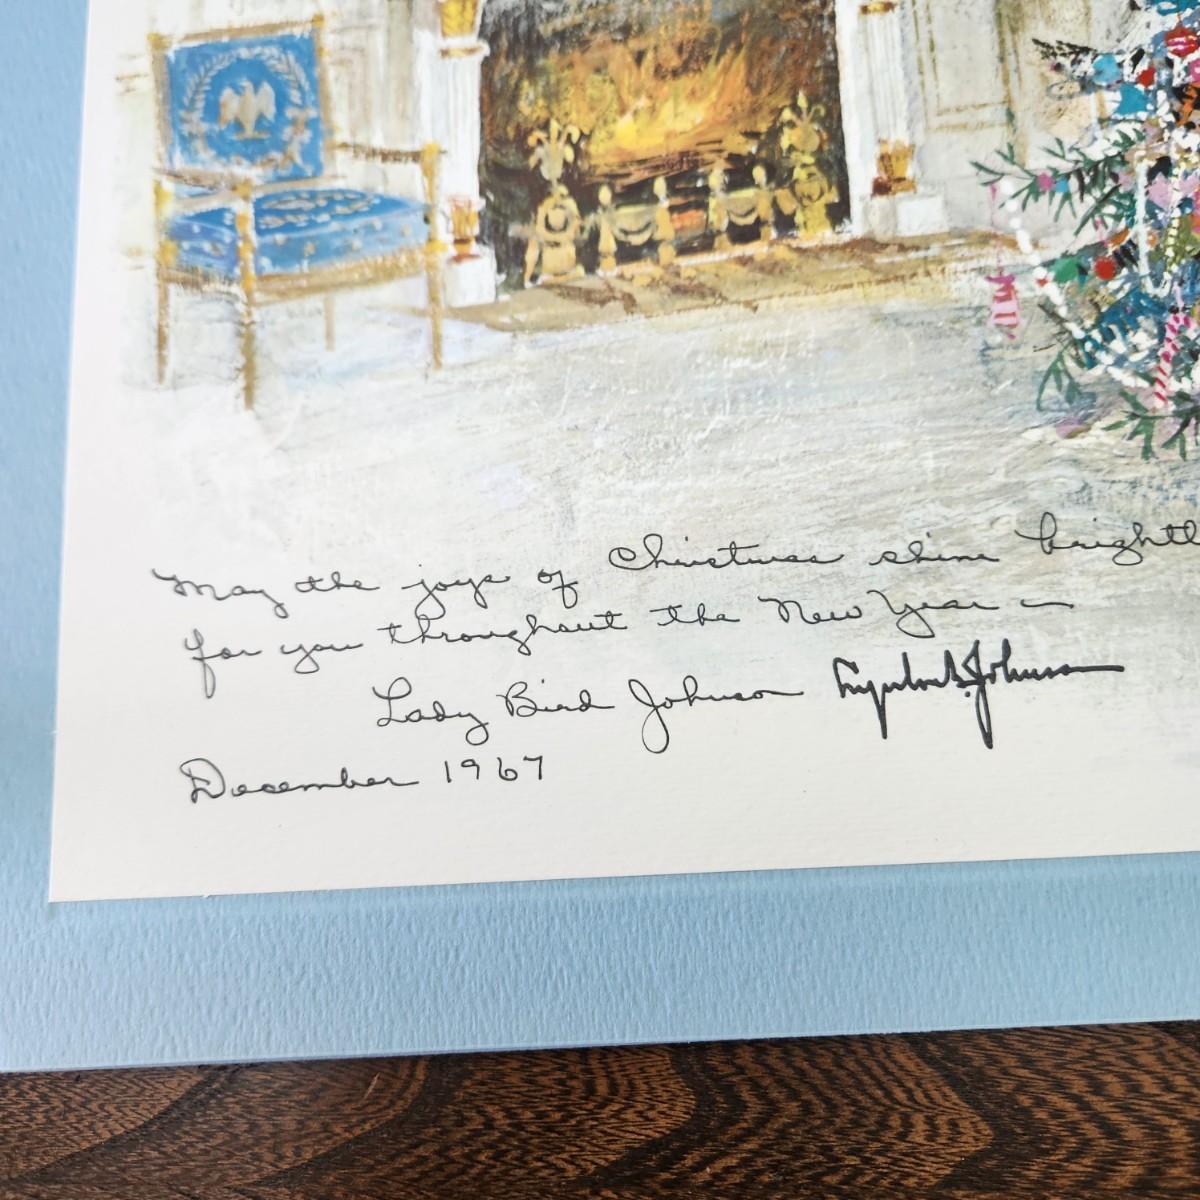 May the joys of Christmas shine brightl
for you throughout the New Year —
Lady Bird Johnson Lyndon B. Johnson
December 1967